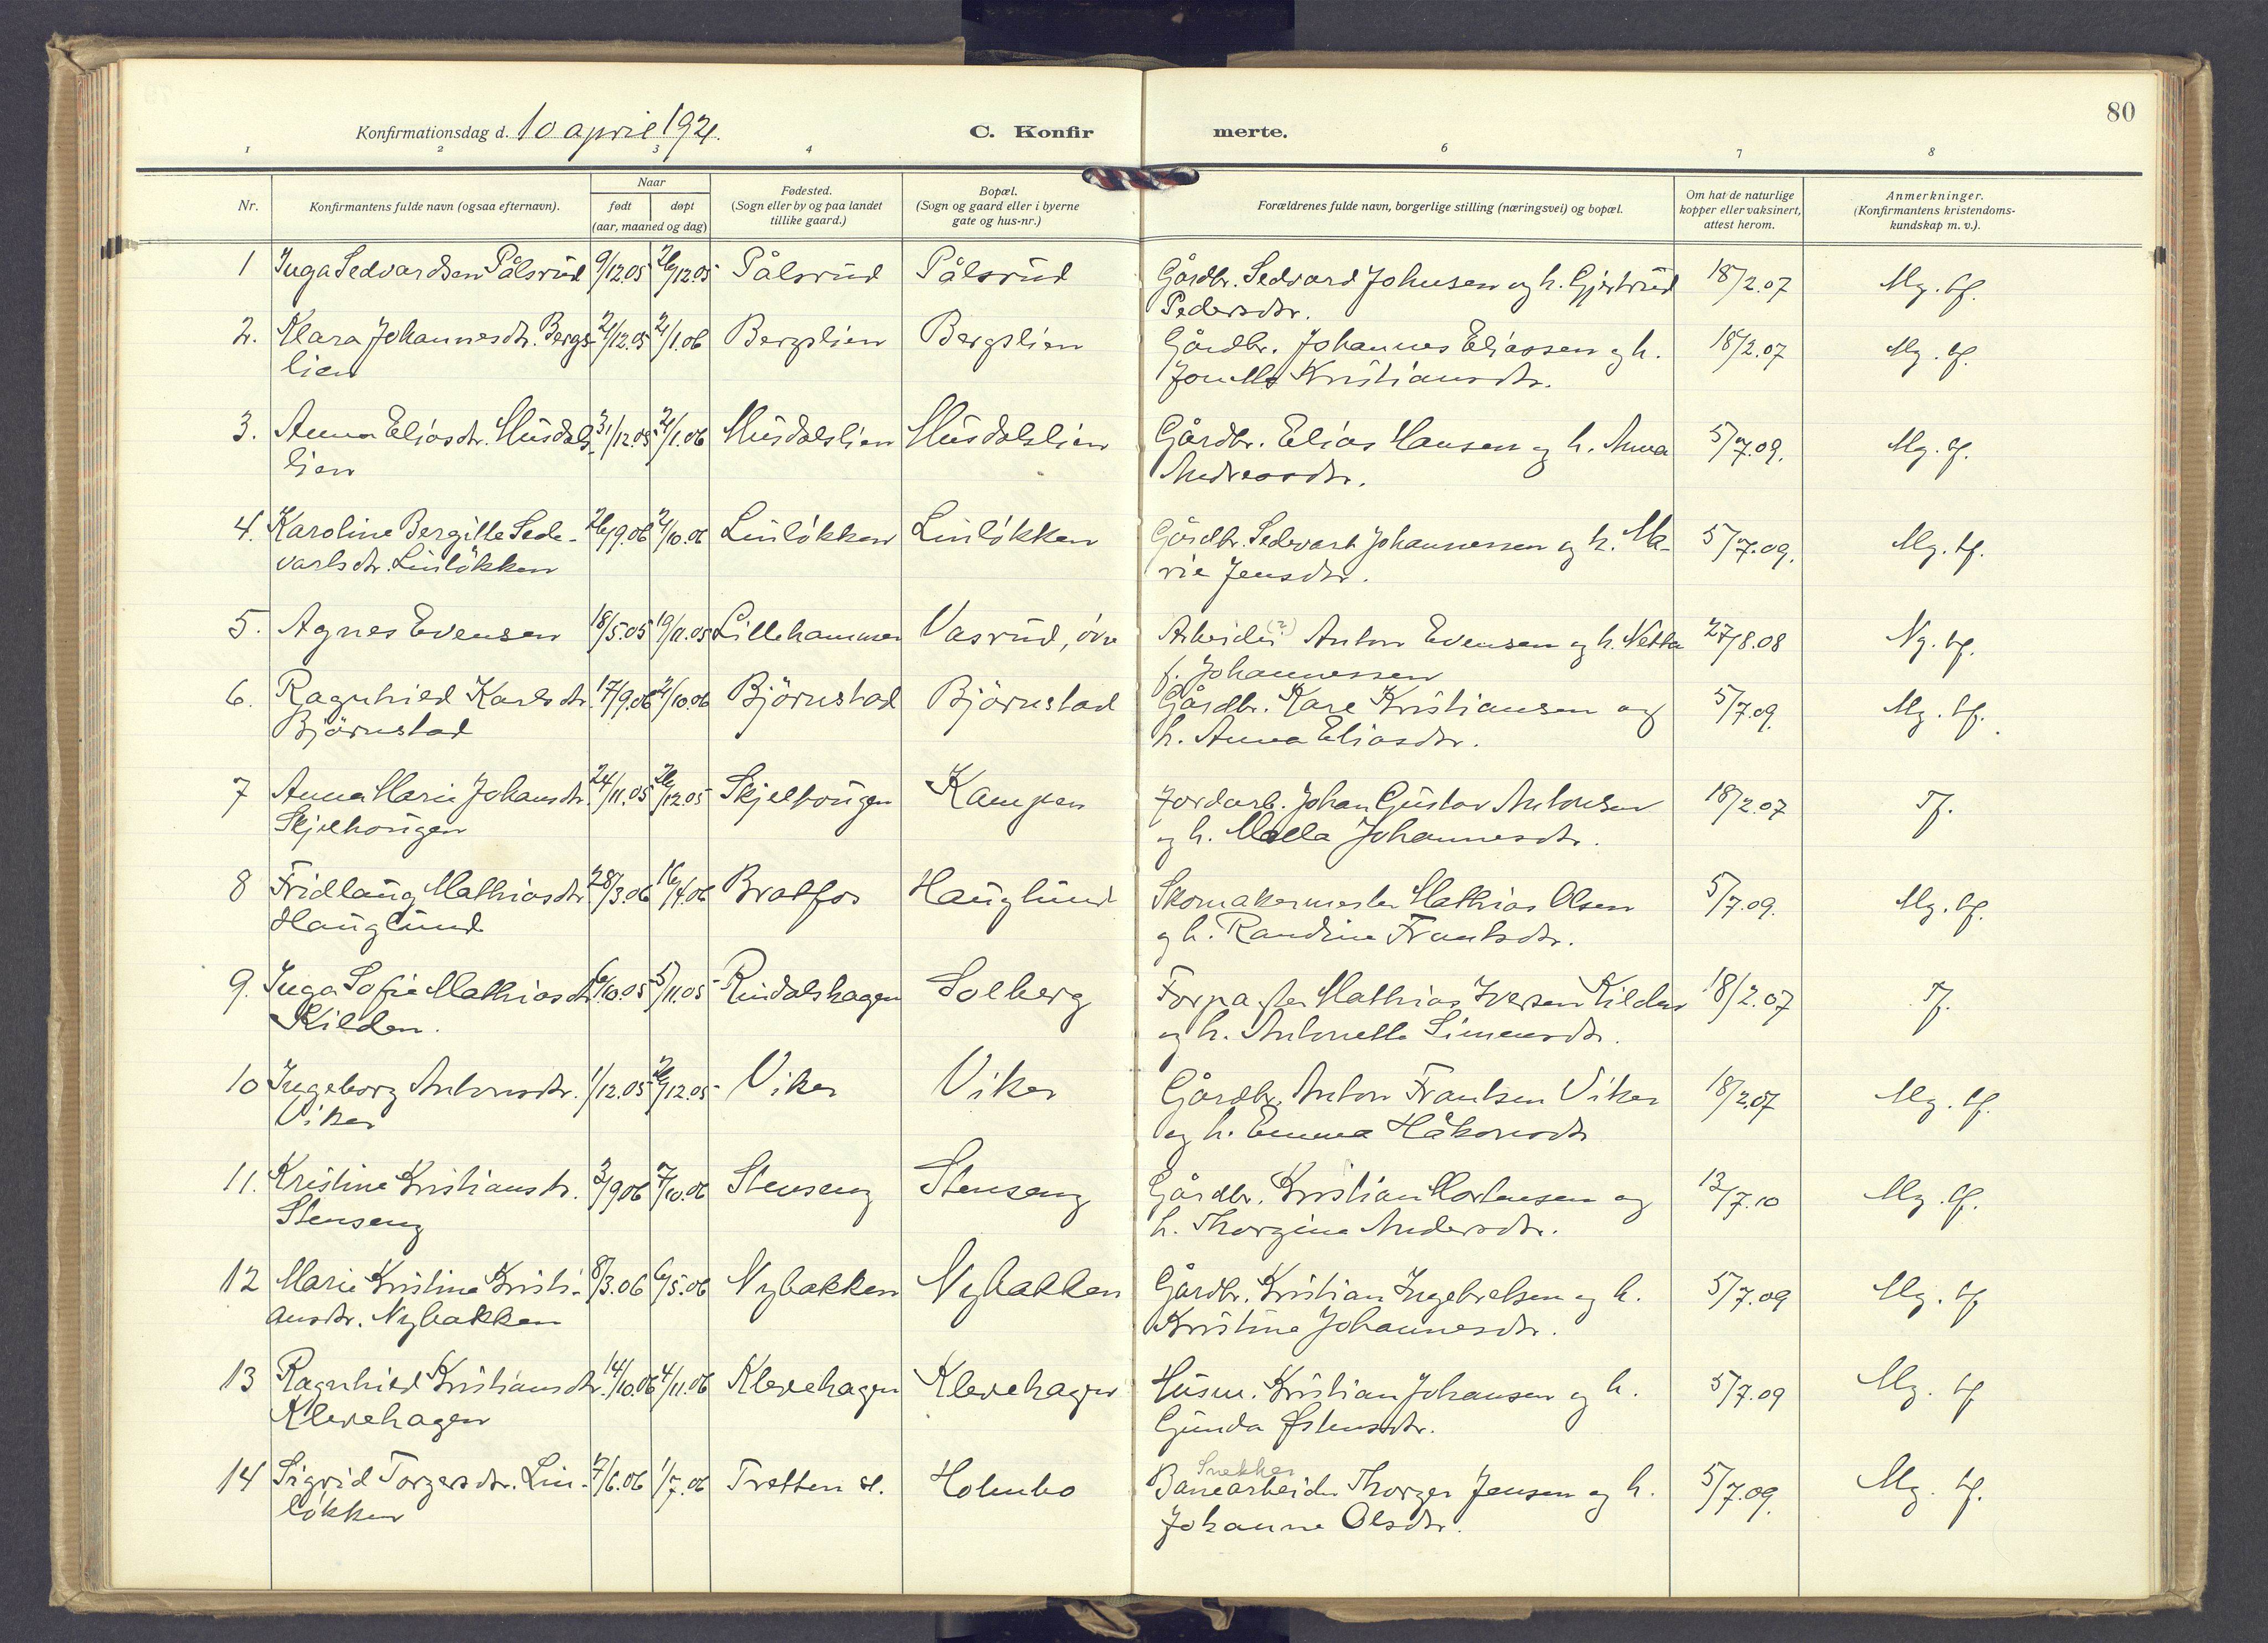 80
Konfirmationsdag d. 10 april 1921.
C. Konfir merte.
1 2 3 4 6 7 8
Nr.
Konfirmantens fulde navn (ogsaa efternavn).
Naar
født
døpt
(aar, maaned og dag)
Fødested.
(Sogn eller by og paa landet
tillike gaard.)
Bopæl.
(Sogn og gaard eller i byerne
gate og hus-nr.)
Forældrenes fulde navn, borgerlige stilling (næringsvei) og bopæl.
Om hat de naturlige
kopper eller vaksinert,
attest herom.
Anmerkninger.
(Konfirmantens kristendoms-
kundskap m. v.).
1 Inga Sedvardsen Pålsrud 9/12.05 26/12.05 Pålsrud Pålsrud Gårdbr. Sedvard Johnsen og h. Gjertrud 18/2.07 Mg. tf.
Pedersdtr.
2. Klara Johannesdtr. Bergs- 21/12.05 21/1.06 Bergslien Bergslien Gårdbr. Johannes Eliassen og h. 18/2.07 Mg. tf.
lien Jonette Kristiansdtr.
3. Anna Eliasdtr. Musdals- 31/12.05 21/1.06 Musdalslien Musdalslien Gårdbr. Elias Hansen og h. Anna 5/7.09. Mg. tf.
lien Andreasdtr.
4. Karoline Bergitte Sede- 26/9.06 21/10.06 Linløkken Linløkken Gårdbr. Sedevart Johannessen og h. Ma- 5/7.09. Mg. tf.
vartsdtr. Linløkken rie Jensdtr.
5. Agnes Evensen 18/5.05 19/11.05 Lillehammer Vasrud, øvre Arbeider (?) Anton Evensen og h. Netta 27/8.08 Ng. tf.
f. Johannessen
6. Ragnhild Karlsdtr. 17/9.06 21/10.06 Björnstad Björnstad Gårdbr. Karl Kristiansen og 5/7.09. Mg. tf.
Björnstad h. Anna Eliasdtr.
7 Anna Marie Johansdtr. 24/11.05 26/12.05 Skjelhougen Kampen Jordarb. Johan Gustav Antonsen 18/2.07 Tf.
Skjelhougen og h. Malla Johannesdtr.
8 Fridlaug Mathiasdtr. 28/3.06 16/4.06 Bratfos Hauglund Skomakermester Mathias Olsen 5/7.09. Mg. tf.
Hauglund og h. Randine Frantsdtr.
9. Inga Sofie Mathiasdtr. 6/10.05 5/11.05 Rindalshagen Solberg Forpagter Mathias Iversen Kilden 18/2.07 Tf.
Kilden. og h. Antonette Simensdtr.
10 Ingeborg Antonsdtr. 1/12.05 26/12.05 Viker Viker Gårdbr. Anton Frantsen Viker 18/2.07 Mg. tf.
Viker og h. Emma Håkonsdtr.
11. Kristine Kristiansdtr. 3/9.06 7/10.06 Stenseng Stenseng Gårdbr. Kristian Mortensen og 12/7.10 Mg. tf.
Stenseng h. Thorgine Andersdtr.
12 Marie Kristine Kristi- 8/3.06 6/5.06 Nybakken Nybakken Gårdbr. Kristian Ingebretsen og h. 5/7.09 Mg. tf
ansdtr. Nybakken Kristine Johannesdtr.
13 Ragnhild Kristiansdtr. 14/10.06 4/11.06 Klevehagen Klevehagen Husm. Kristian Johansen og h. 5/7.09 Mg. tf
Klevehagen Gunda Østensdtr.
Snekker
14 Sigrid Torgersdtr. Lin- 7/6.06 1/7.06 Tretten st. Holmbo Banearbeider Thorger Jensen og h. 5/7.09. Mg. tf.
løkken Johanne Olsdtr.